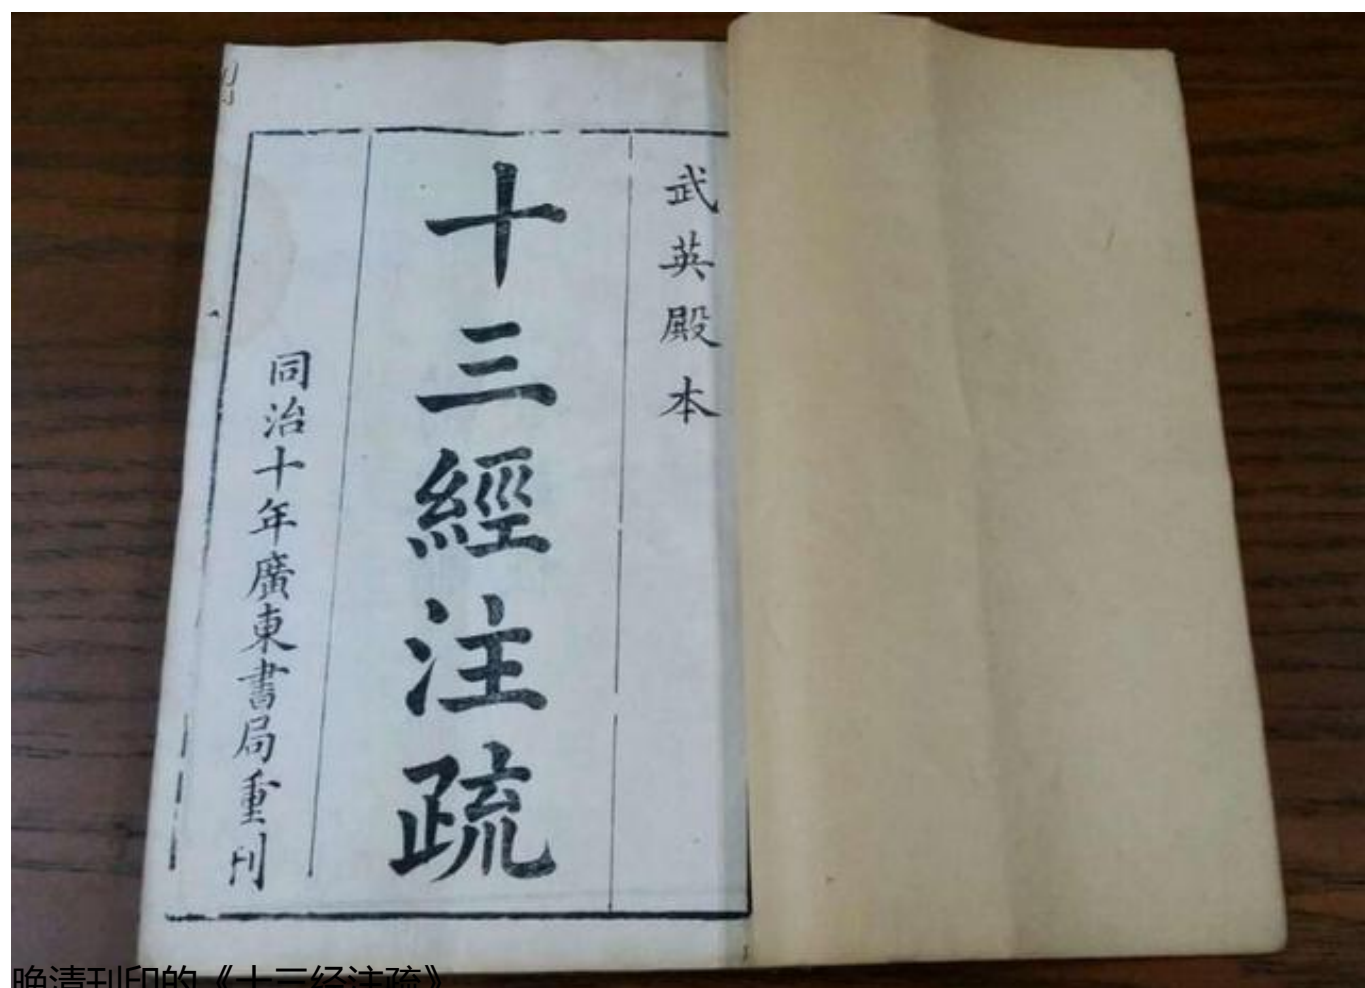 武英殿本
十三經注疏
同治十年廣東書局重刊
晚清刊印的《十三经注疏》